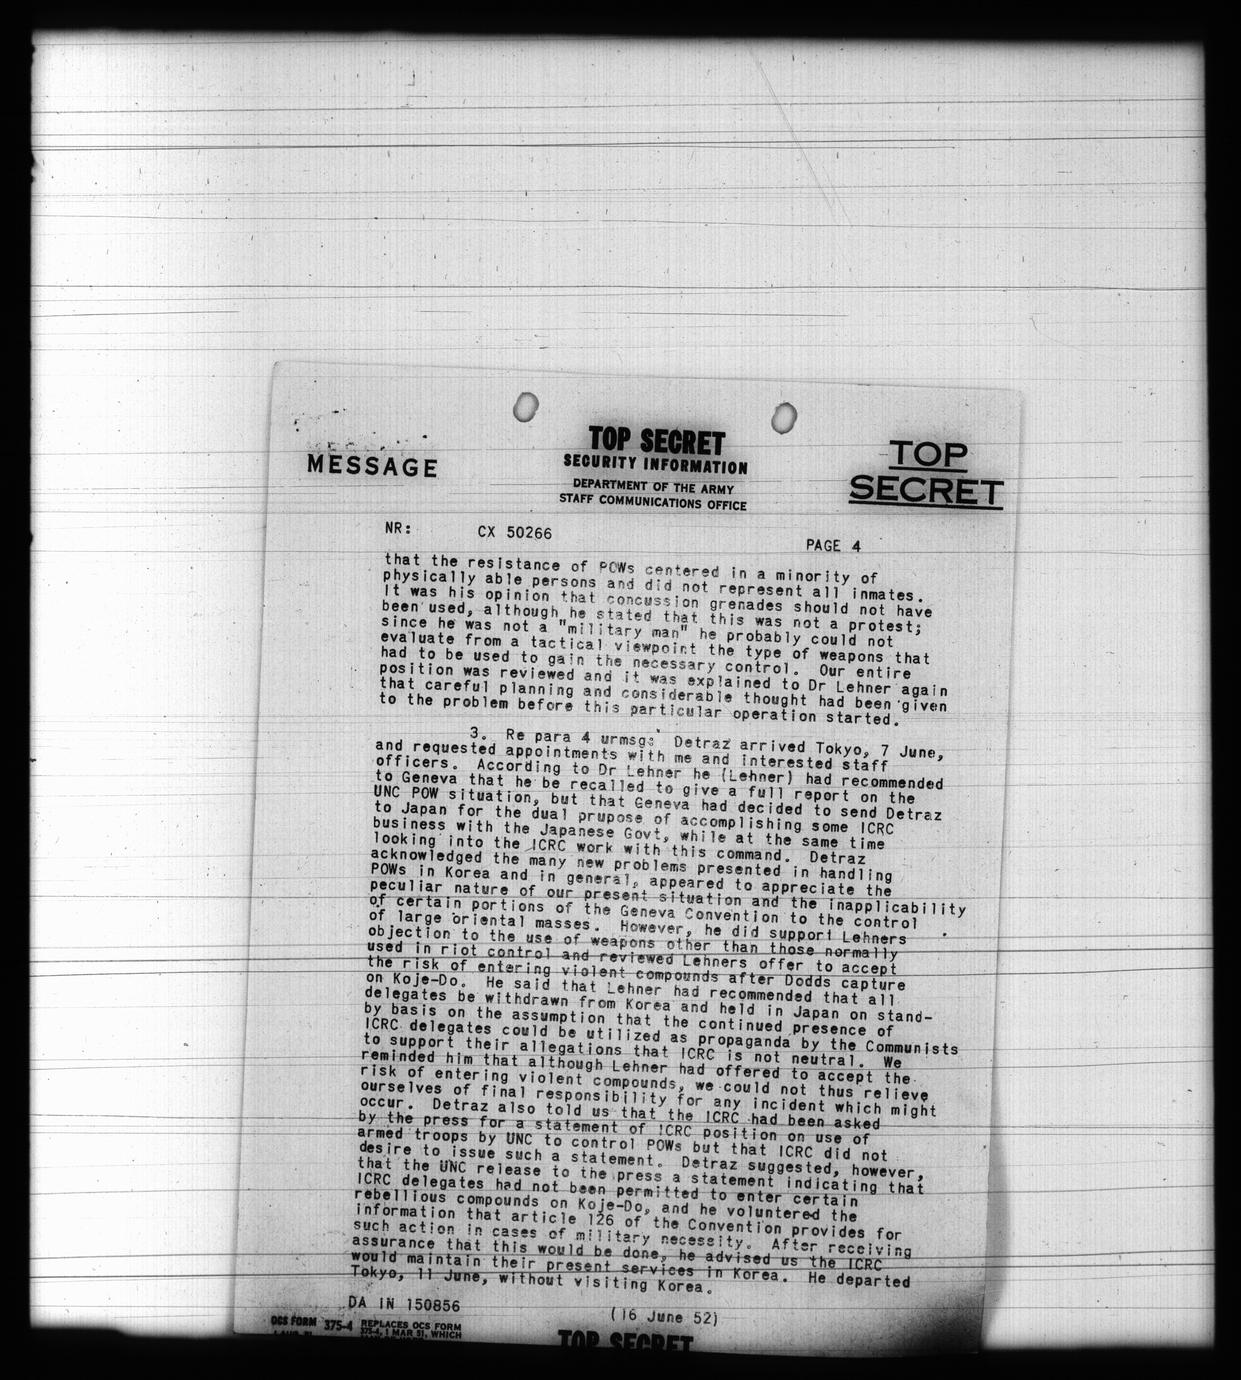 MESSAGE
TOP SECRET
SECURITY INFORMATION
DEPARTMENT OF THE ARMY
STAFF COMMUNICATIONS OFFICE
TOP
SECRET
NR: CX 50266
PAGE 4
that the resistance of POWs centered in a minority of
physically able persons and did not represent all inmates.
It was his opinion that concussion grenades should not have
been used, although he stated that this was not a protest;
since he was not a "military man" he probably could not
evaluate from a tactical viewpoint the type of weapons that
had to be used to gain the necessary control. Our entire
position was reviewed and it was explained to Dr Lehner again
that careful planning and considerable thought had been given
to the problem before this particular operation started.
3. Re para 4 urmsg: Detraz arrived Tokyo, 7 June,
and requested appointments with me and interested staff
officers. According to Dr Lehner he (Lehner) had recommended
to Geneva that he be recalled to give a full report on the
UNC POW situation, but that Geneva had decided to send Detraz
to Japan for the dual prupose of accomplishing some ICRC
business with the Japanese Govt, while at the same time
looking into the ICRC work with this command. Detraz
acknowledged the many new problems presented in handling
POWs in Korea and in general, appeared to appreciate the
peculiar nature of our present situation and the inapplicability
of certain portions of the Geneva Convention to the control
of large oriental masses. However, he did support Lehners
objection to the use of weapons other than those normally
used in riot control and reviewed Lehners offer to accept
the risk of entering violent compounds after Dodds capture
on Koje-Do. He said that Lehner had recommended that all
delegates be withdrawn from Korea and held in Japan on stand-
by basis on the assumption that the continued presence of
ICRC delegates could be utilized as propaganda by the Communists
to support their allegations that ICRC is not neutral. We
reminded him that although Lehner had offered to accept the
risk of entering violent compounds, we could not thus relieve
ourselves of final responsibility for any incident which might
occur. Detraz also told us that the ICRC had been asked
by the press for a statement of ICRC position on use of
armed troops by UNC to control POWs but that ICRC did not
desire to issue such a statement. Detraz suggested, however,
that the UNC release to the press a statement indicating that
ICRC delegates had not been permitted to enter certain
rebellious compounds on Koje-Do, and he voluntered the
information that article 126 of the Convention provides for
such action in cases of military necessity. After receiving
assurance that this would be done, he advised us the ICRC
would maintain their present services in Korea. He departed
Tokyo, 11 June, without visiting Korea.
DA IN 150856
(16 June 52)
OCS FORM 375-4 REPLACES OCS FORM
375-4, 1 MAR 51, WHICH
TOP SECRET